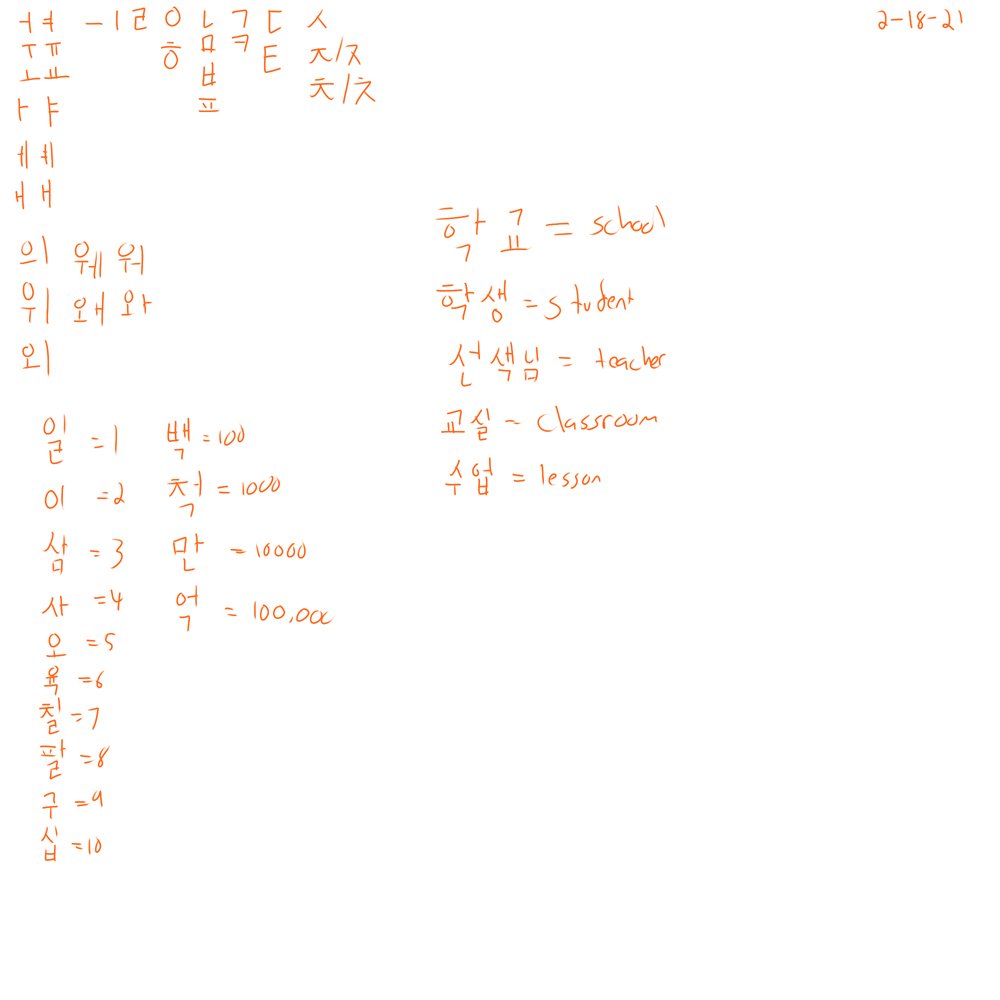 ㅓㅕ ㅡㅣㄹ ㅇ ㄴ ㄱ ㄷ ㅅ 2-18-21
ㅜㅠ ㅎ ㅁ ㅋ ㅌ ㅈ/ㅈ
ㅗㅛ ㅂ ㅊ/ㅊ
ㅏㅑ ㅍ
ㅔㅖ
ㅐㅒ
의 웨 워
위 왜 와
외
학교 = school
학생 = student
선색님 = teacher
교실 = classroom
수업 = lesson
일 = 1 백 = 100
이 = 2 척 = 1000
삼 = 3 만 = 10000
사 = 4 억 = 100,000
오 = 5
육 = 6
칠 = 7
팔 = 8
구 = 9
십 = 10